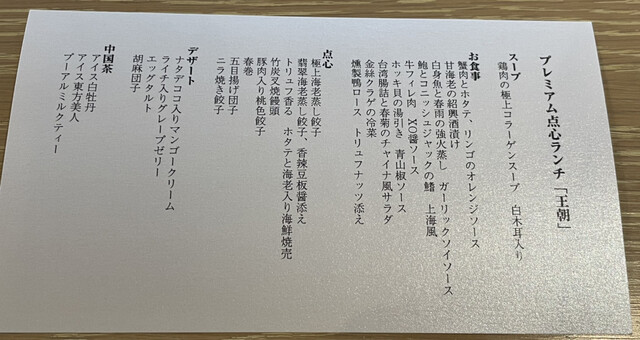 プレミアム点心ランチ「王朝」
スープ
鶏肉の極上コラーゲンスープ　白木耳入り
お食事
蟹肉とホタテ、リンゴのオレンジソース
甘海老の紹興酒漬け
白身魚と春雨の強火蒸し　ガーリックソイソース
鮑とコニッシュジャックの鰭　上海風
牛フィレ肉　XO醤ソース
ホッキ貝の湯引き　青山椒ソース
台湾腸詰と春菊のチャイナ風サラダ
金絲クラゲの冷菜
燻製鴨ロース　トリュフナッツ添え
点心
極上海老蒸し餃子
翡翠海老蒸し餃子、香辣豆板醤添え
トリュフ香る　ホタテと海老入り海鮮焼売
竹炭叉焼饅頭
豚肉入り桃色餃子
春巻
五目揚げ団子
ニラ焼き餃子
デザート
ナタデココ入りマンゴークリーム
ライチ入りグレープゼリー
エッグタルト
胡麻団子
中国茶
アイス白牡丹
アイス東方美人
プーアルミルクティー